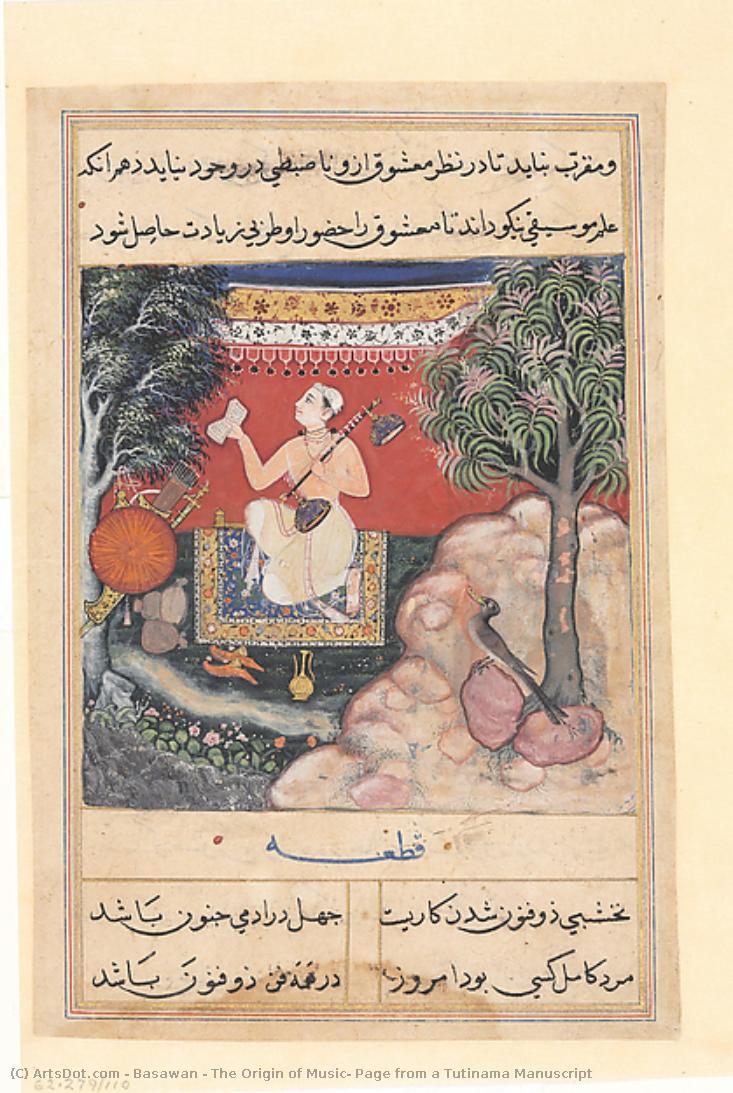 ومقرّب نباید تا در نظر معشوق ازو ناضبطي در وجود نیاید دهم انکه
علم موسیقي نیکو داند تا معشوق را حضور او طربي زیادت حاصل شود
قطعه
نخشبي ذوفنون شدن کاریست جهل در ادمي جنون باشد
مرد کامل کسي بود امروز در همه فن ذوفنون باشد
(C) ArtsDot.com - Basawan - The Origin of Music- Page from a Tutinama Manuscript
62.279/110